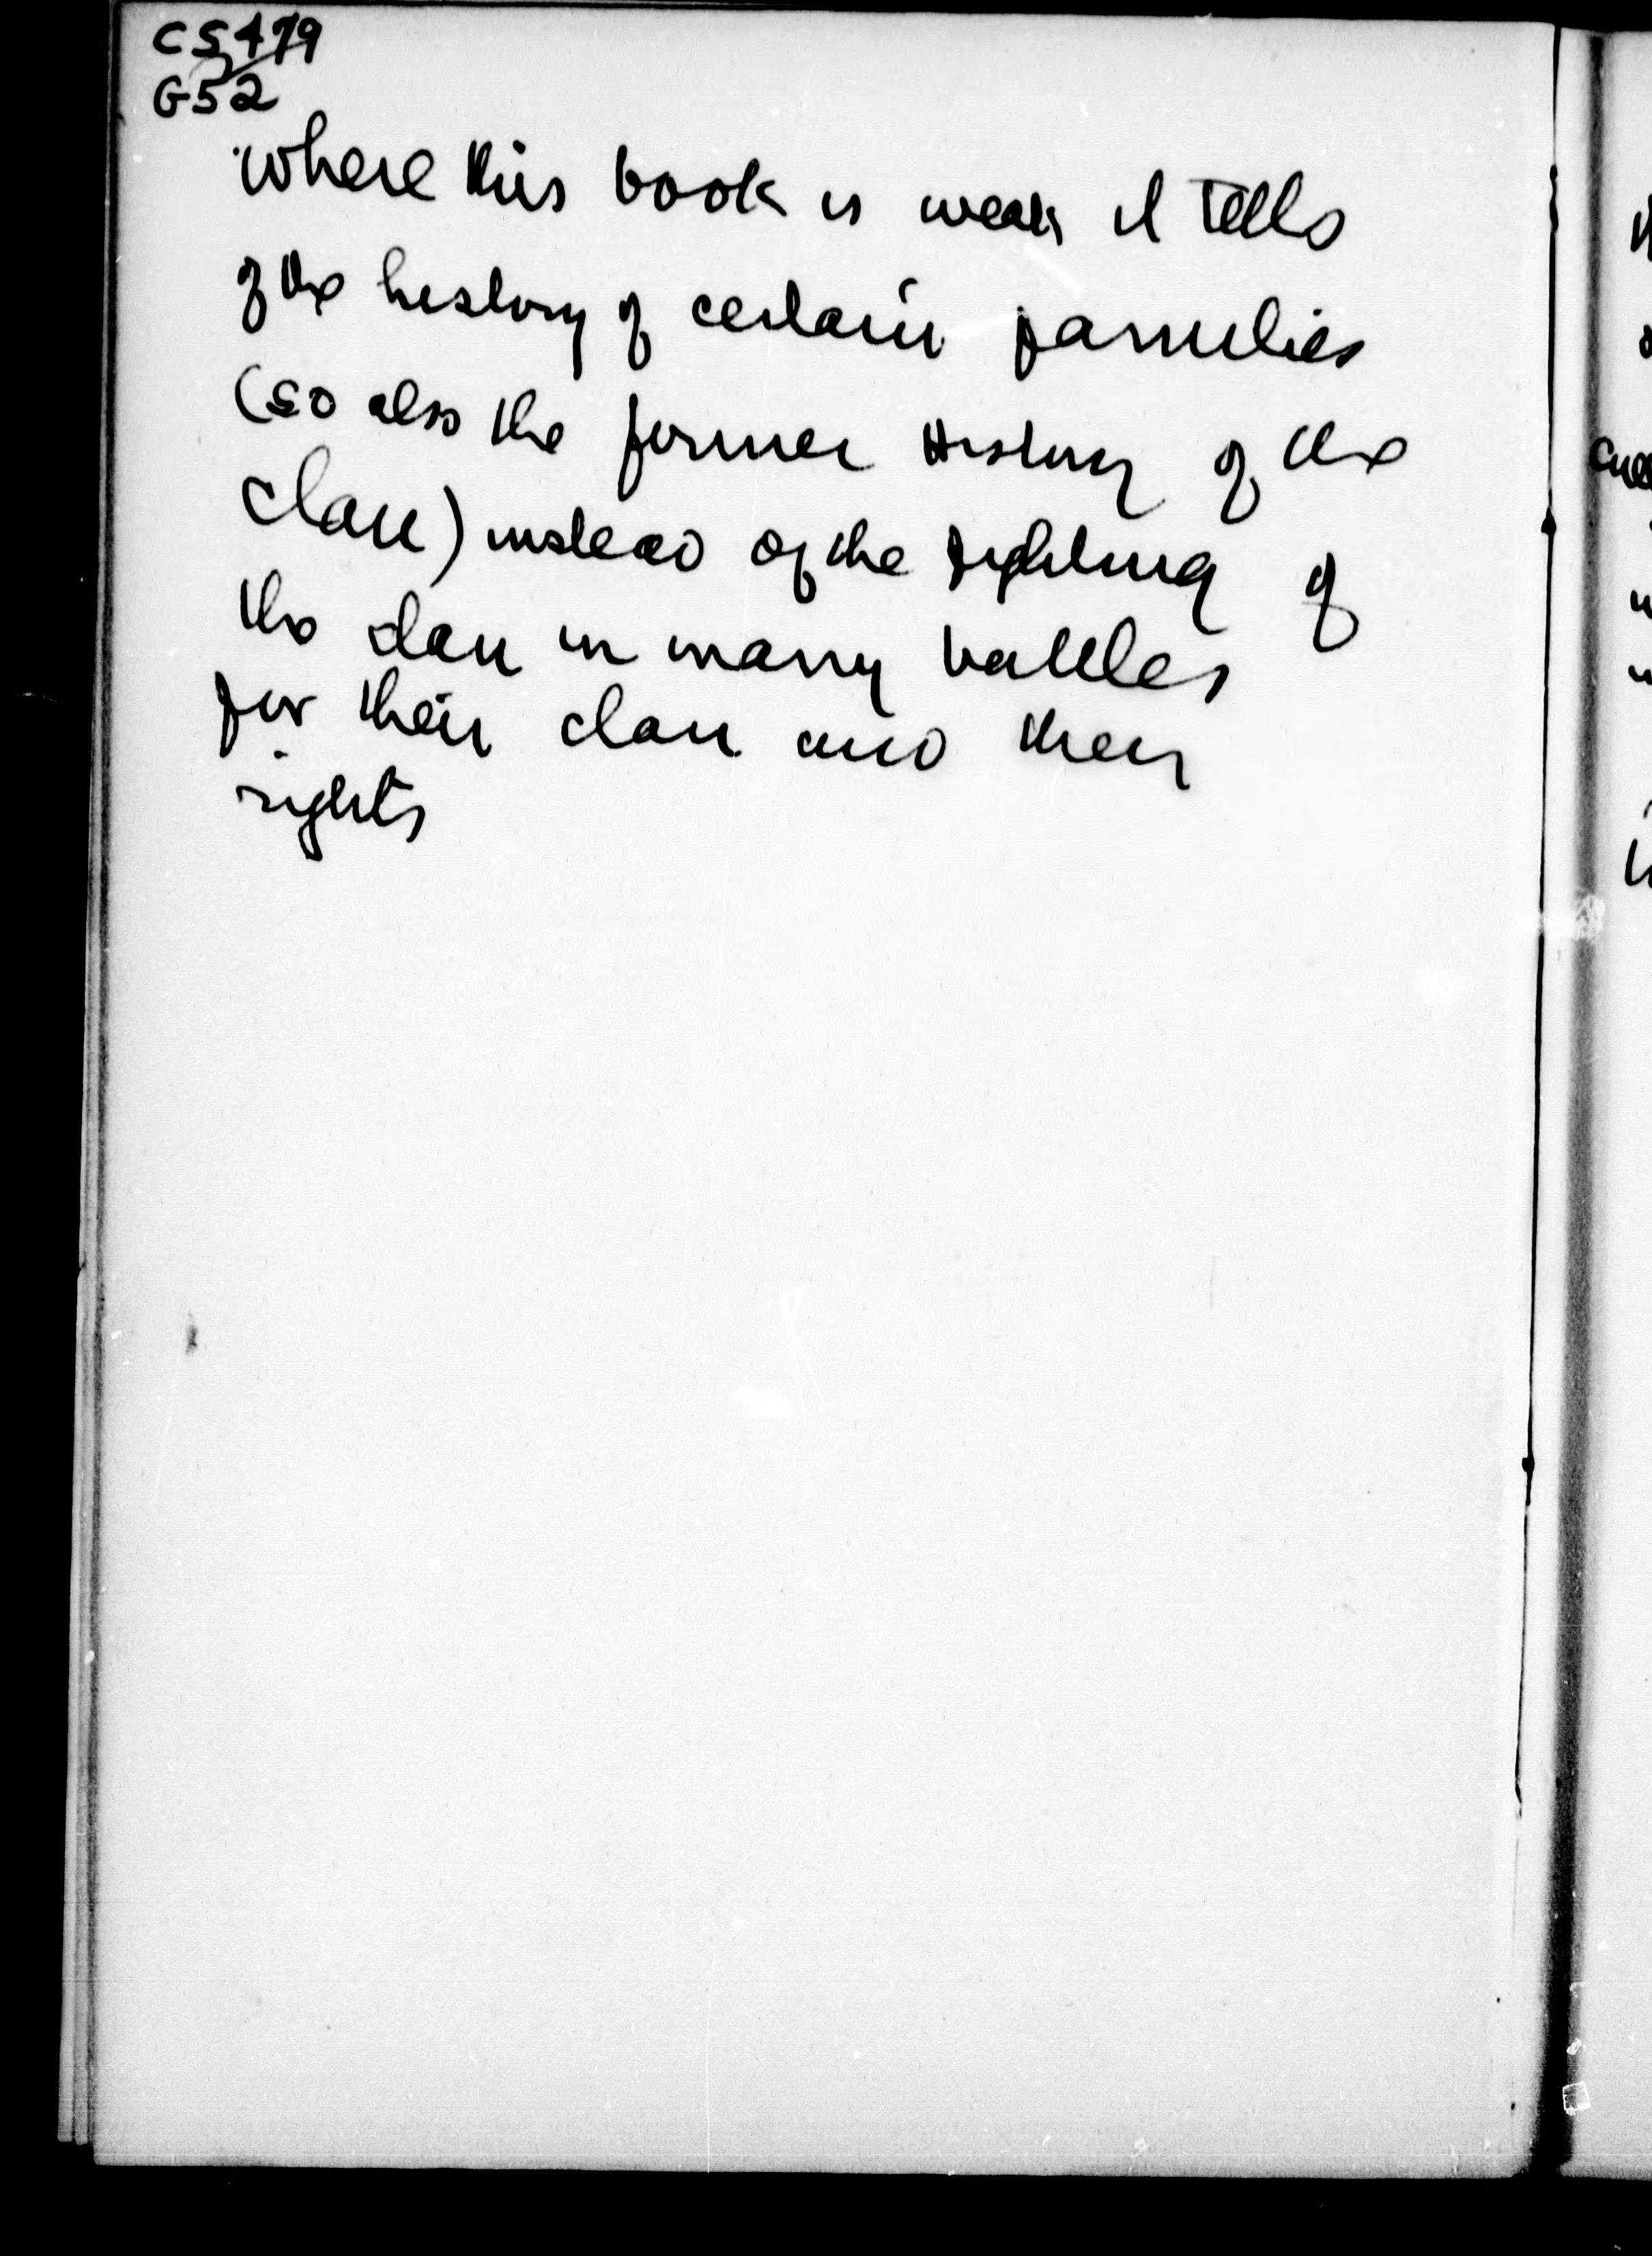 CS479
G52
where this book is weak it tells
of the history of certain families
(so also the former History of the
clan) instead of the fighting of
the clan in many battles
for their clan and their
rights